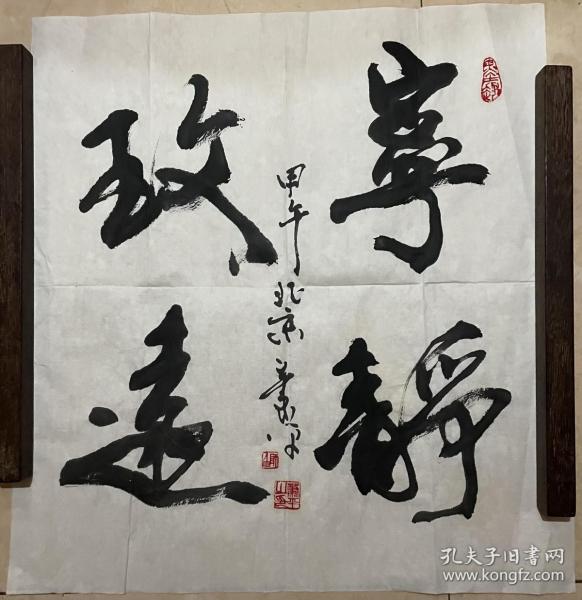 寧靜
致遠
甲午北京
孔夫子旧书网
www.kongfz.com